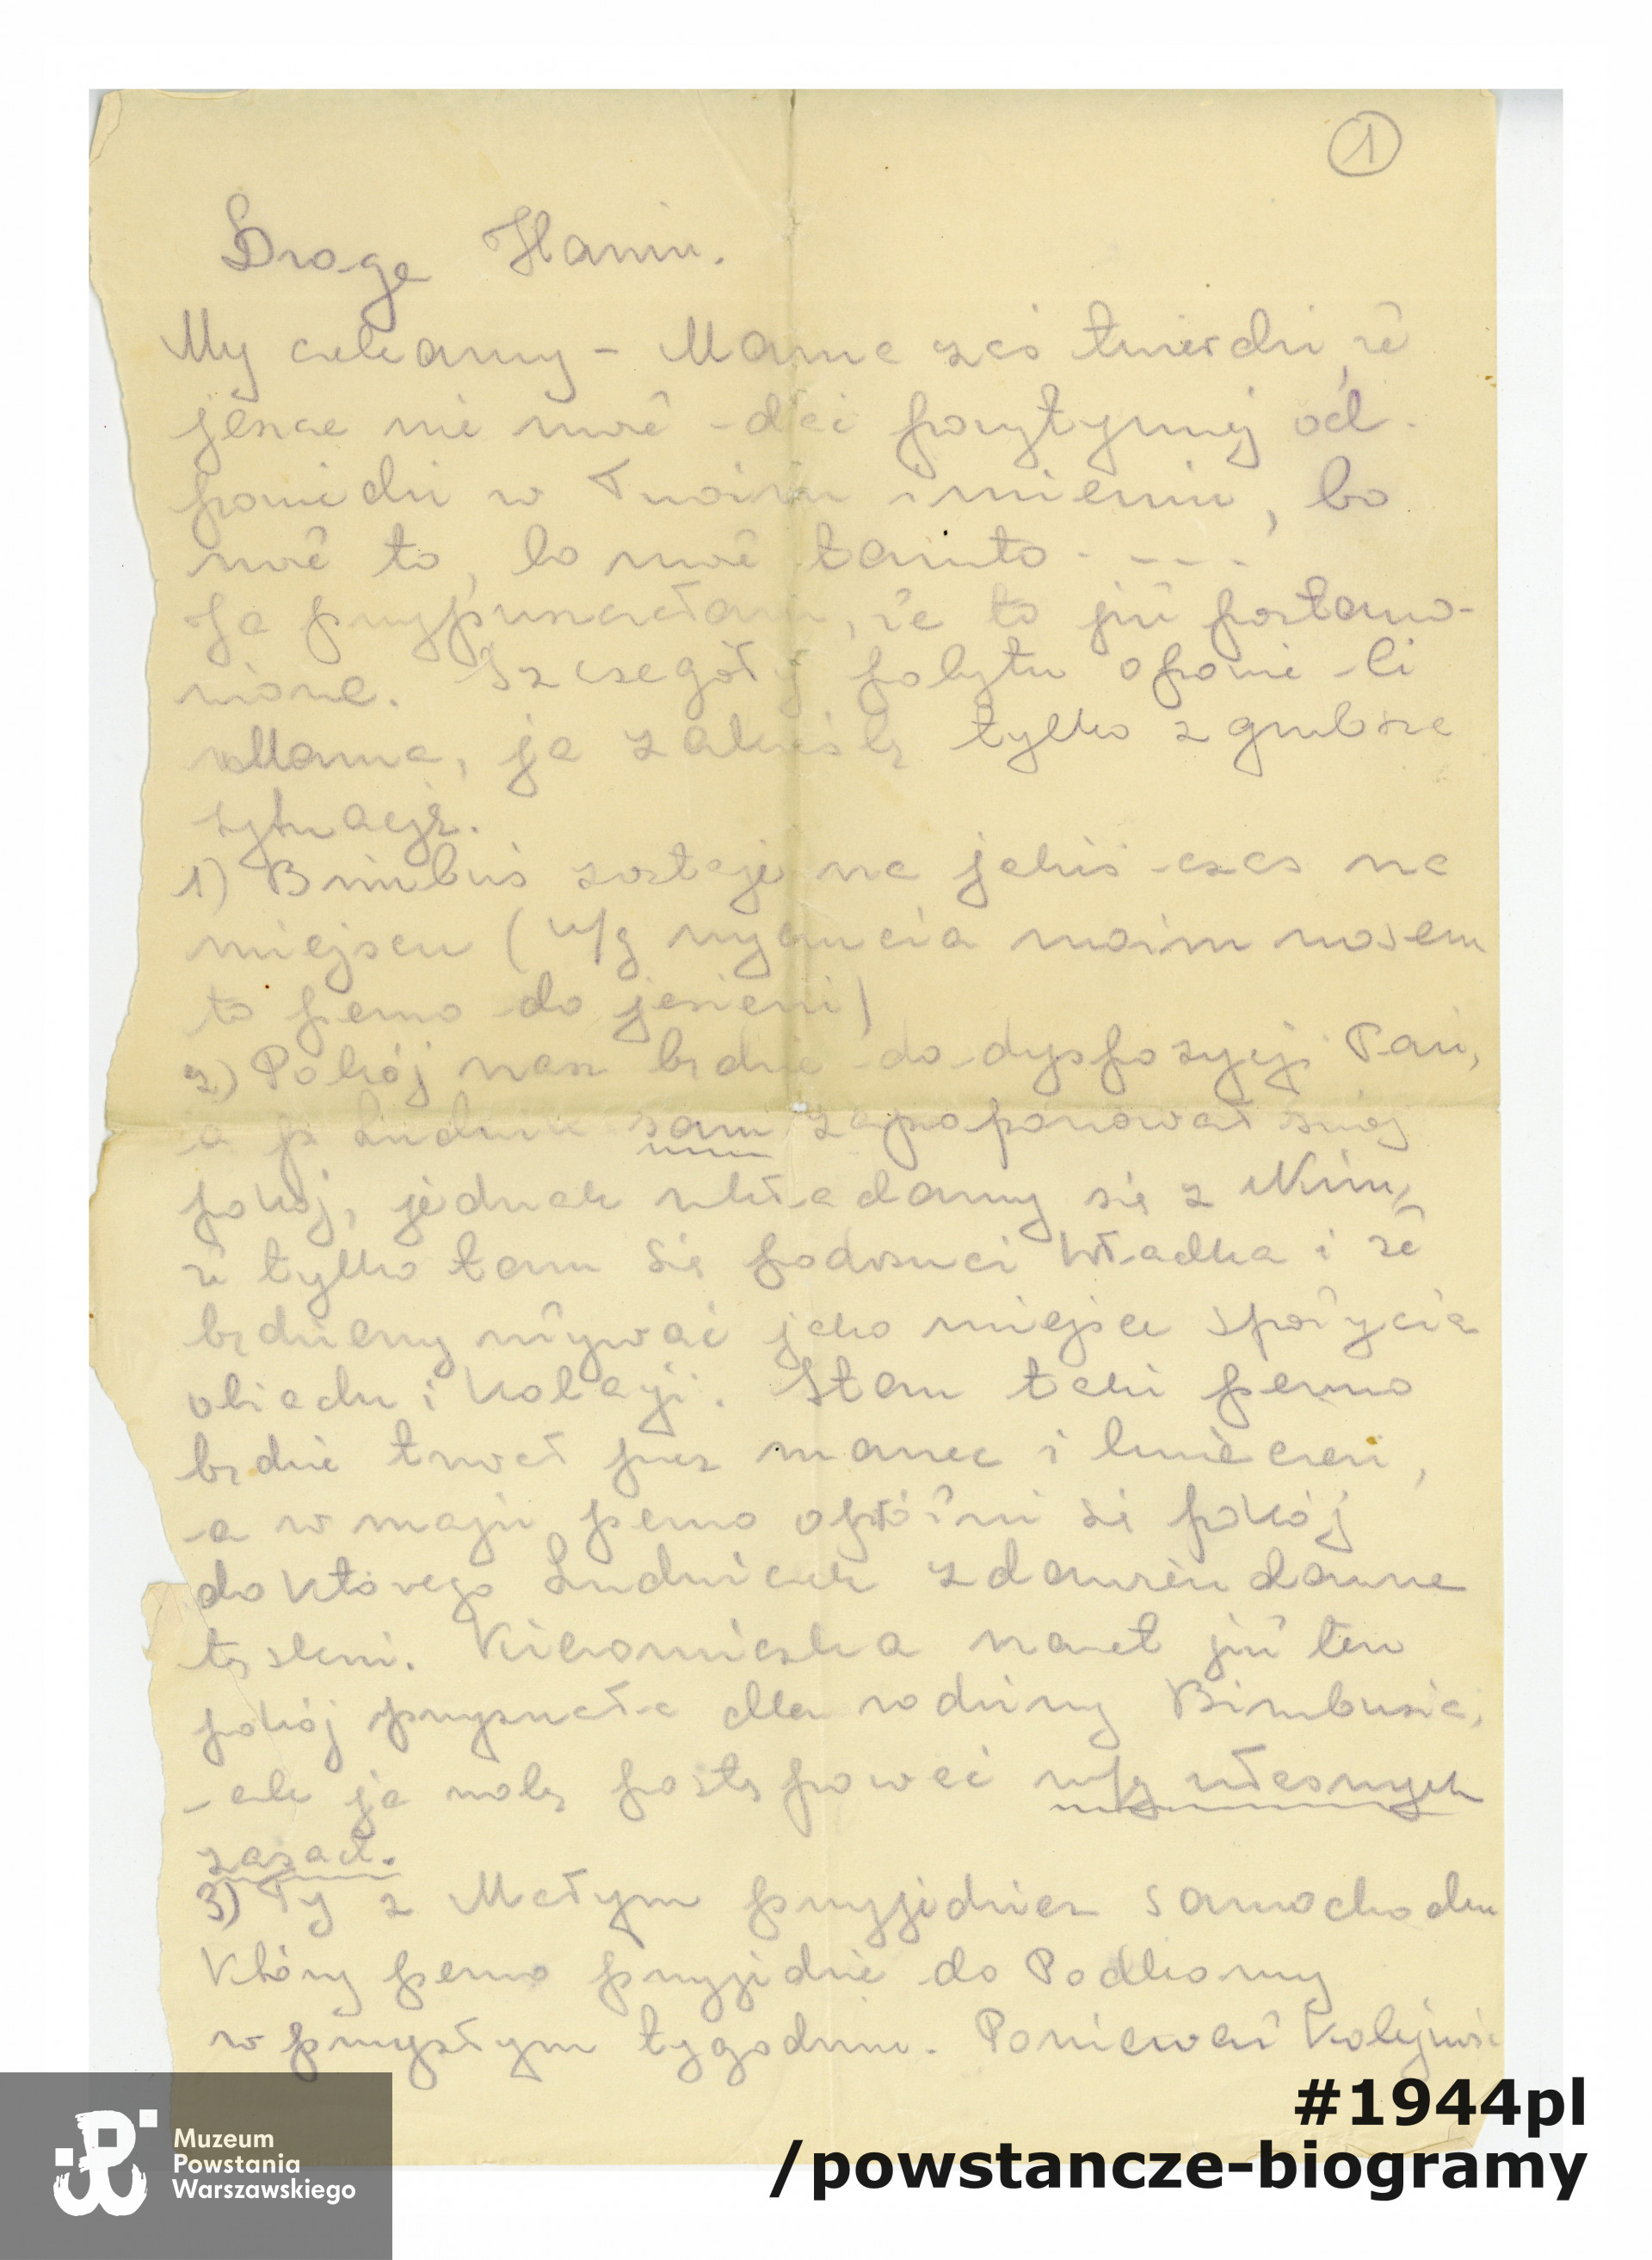 1
Droga Haniu.
My czekamy – Mama zaś twierdzi, że
jeszcze nie może dać pozytywnej od-
powiedzi w Twoim imieniu, bo
może to, bo może tamto - - - -
Ja przypuszczałam, że to już postano-
wione. Szczegóły pobytu opowie Ci
Mama, ja zakreślę tylko z grubsza
sytuację.
1) Bimbuś zostaje na jakiś czas na
miejscu (w/g wyczucia moim nosem
to pewno do jesieni)
2) Pokój nasz będzie do dyspozycji Pań,
a p Ludwik sam zaproponował swój
pokój, jednak układamy się z Nim,
że tylko tam się podrzuci Władka i że
będziemy używać jako miejsce spożycia
obiadu i kolacji. Stan taki pewno
będzie trwał przez marzec i kwiecień,
a w maju pewno opróżni się pokój
do którego Ludwiczek zdawien dawna
tęskni. Kierowniczka nawet już ten
pokój przyznała dla rodziny Bimbusia,
– ale ja wolę postępować w/g własnych
zasad.
3) Ty z Małym przyjedziesz samochodem
który pewno przyjedzie do Podkowy
w przyszłym tygodniu. Ponieważ
Muzeum
Powstania
Warszawskiego
#1944pl
/powstancze-biogramy